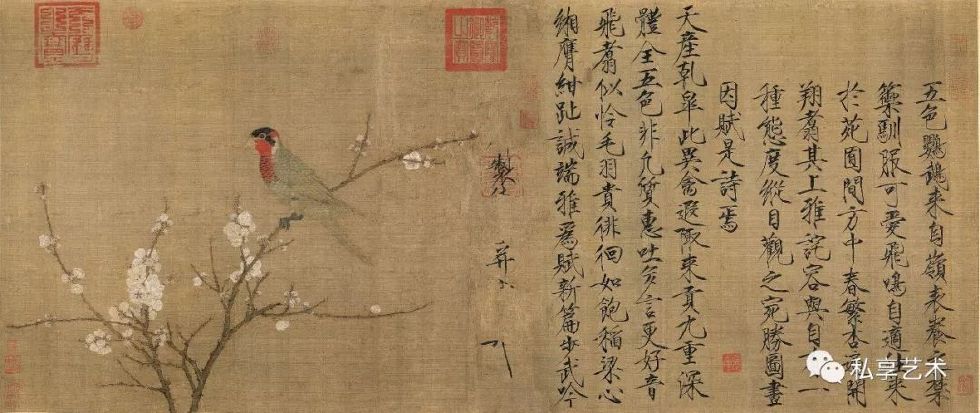 五色鸚鵡来自嶺表養禁
籞馴服可愛飛鳴自適来
於苑囿間方中春繁杏開
翔翥其上雅詫容與自一
種態度縱目觀之宛勝圖畫
因賦是詩焉
天産乾皐此異禽遐陬来貢九重深
體全五色非凡質惠吐多言更好音
飛翥似怜毛羽貴徘徊如飽稲粱心
緗膺紺趾誠端雅為賦新篇步武吟
私享艺术